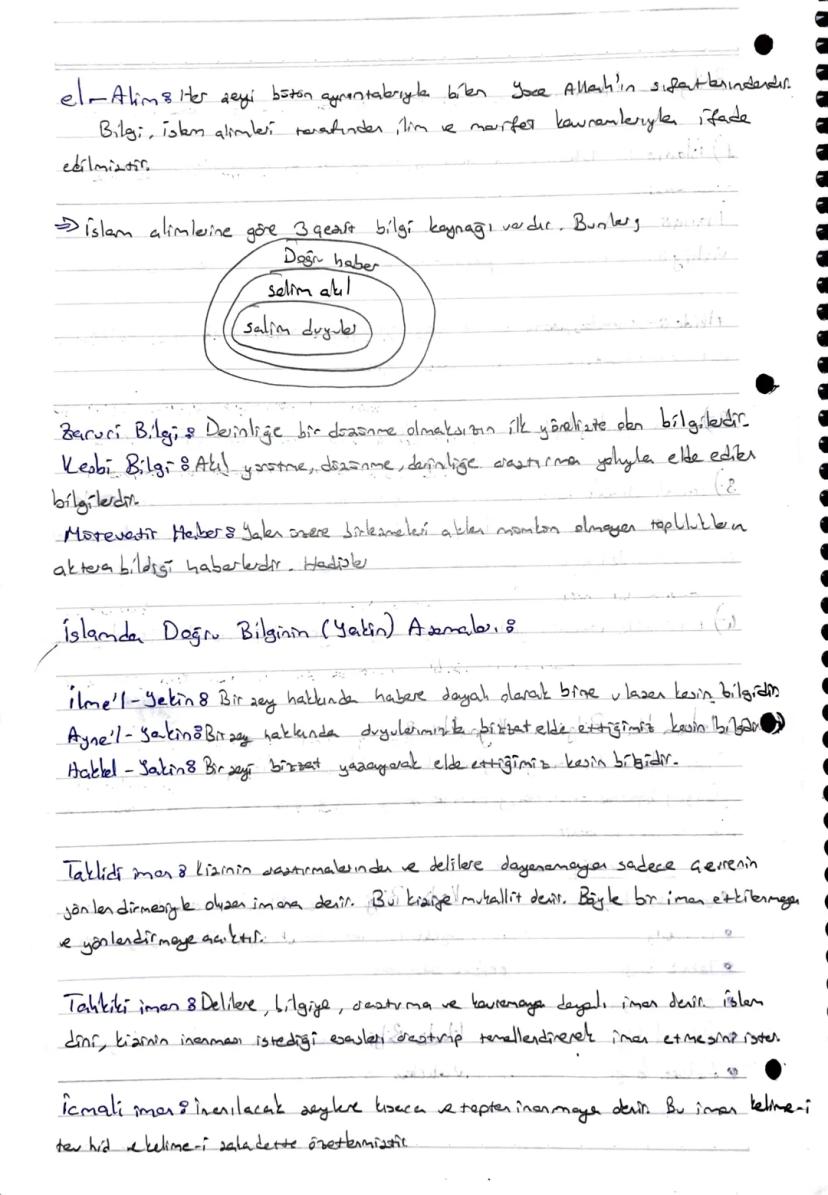 el-Alim: Her şeyi bütün ayrıntılarıyla bilen Yüce Allah'ın sıfatlarındandır.
Bilgi, islam alimleri tarafından ilim ve marifet kavramlarıyla ifade
edilmiştir.
⇒ İslam alimlerine göre 3 çeşit bilgi kaynağı vardır. Bunlar;
Doğru haber
selim akıl
salim duyular
Zaruri Bilgi: Derinliğe bir düşünme olmaksızın ilk yönelişte olan bilgilerdir.
Kesbi Bilgi: Akıl yürütme, düşünme, derinliğe araştırma yoluyla elde edilen
bilgilerdir.
Mütevatir Haber: Yalan üzere birleşmeleri aklen mümkün olmayan toplulukların
aktara bildiği haberlerdir. Hadisler
İslamda Doğru Bilginin (Yakin) Aşamaları:
İlme'l-Yakin: Bir şey hakkında habere dayalı olarak bize ulaşan kesin bilgidir
Ayne'l-Yakin: Bir şey hakkında duyularımızla bizzat elde ettiğimiz kesin bilgidir
Hakkel-Yakin: Bir şeyi bizzat yaşayarak elde ettiğimiz kesin bilgidir.
Taklidi iman: Kişinin araştırmalarından ve delilere dayanamayan sadece çevrenin
yönlendirmesiyle oluşan imana denir. Bu kişiye mukallit denir. Böyle bir iman etkilenmeye
ve yönlendirmeye açıktır.
Tahkiki iman: Delilere, bilgiye, araştırma ve kavramaya dayalı iman denir. İslam
dini, kişinin inanması istediği esasları araştırıp temellendirerek iman etmesini ister.
İcmali iman: İnanılacak şeylere kısaca ve toptan inanmaya denir. Bu iman kelime-i
tevhid ve kelime-i şahadette özetlenmiştir.